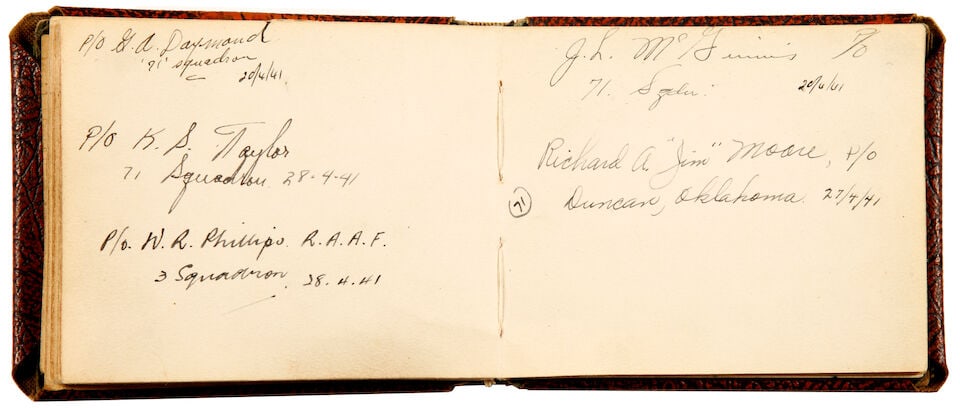 P/O G. A. Daymond
'71' squadron
20/4/41
P/O K. S. Taylor
71 Squadron 28-4-41
P/o. W. R. Phillips. R.A.A.F.
3 Squadron 28.4.41
J. L. McGinnis P/O
71. Sqdn. 20/4/41
Richard A. "Jim" Moore, P/O
71 Duncan, Oklahoma. 27/4/41